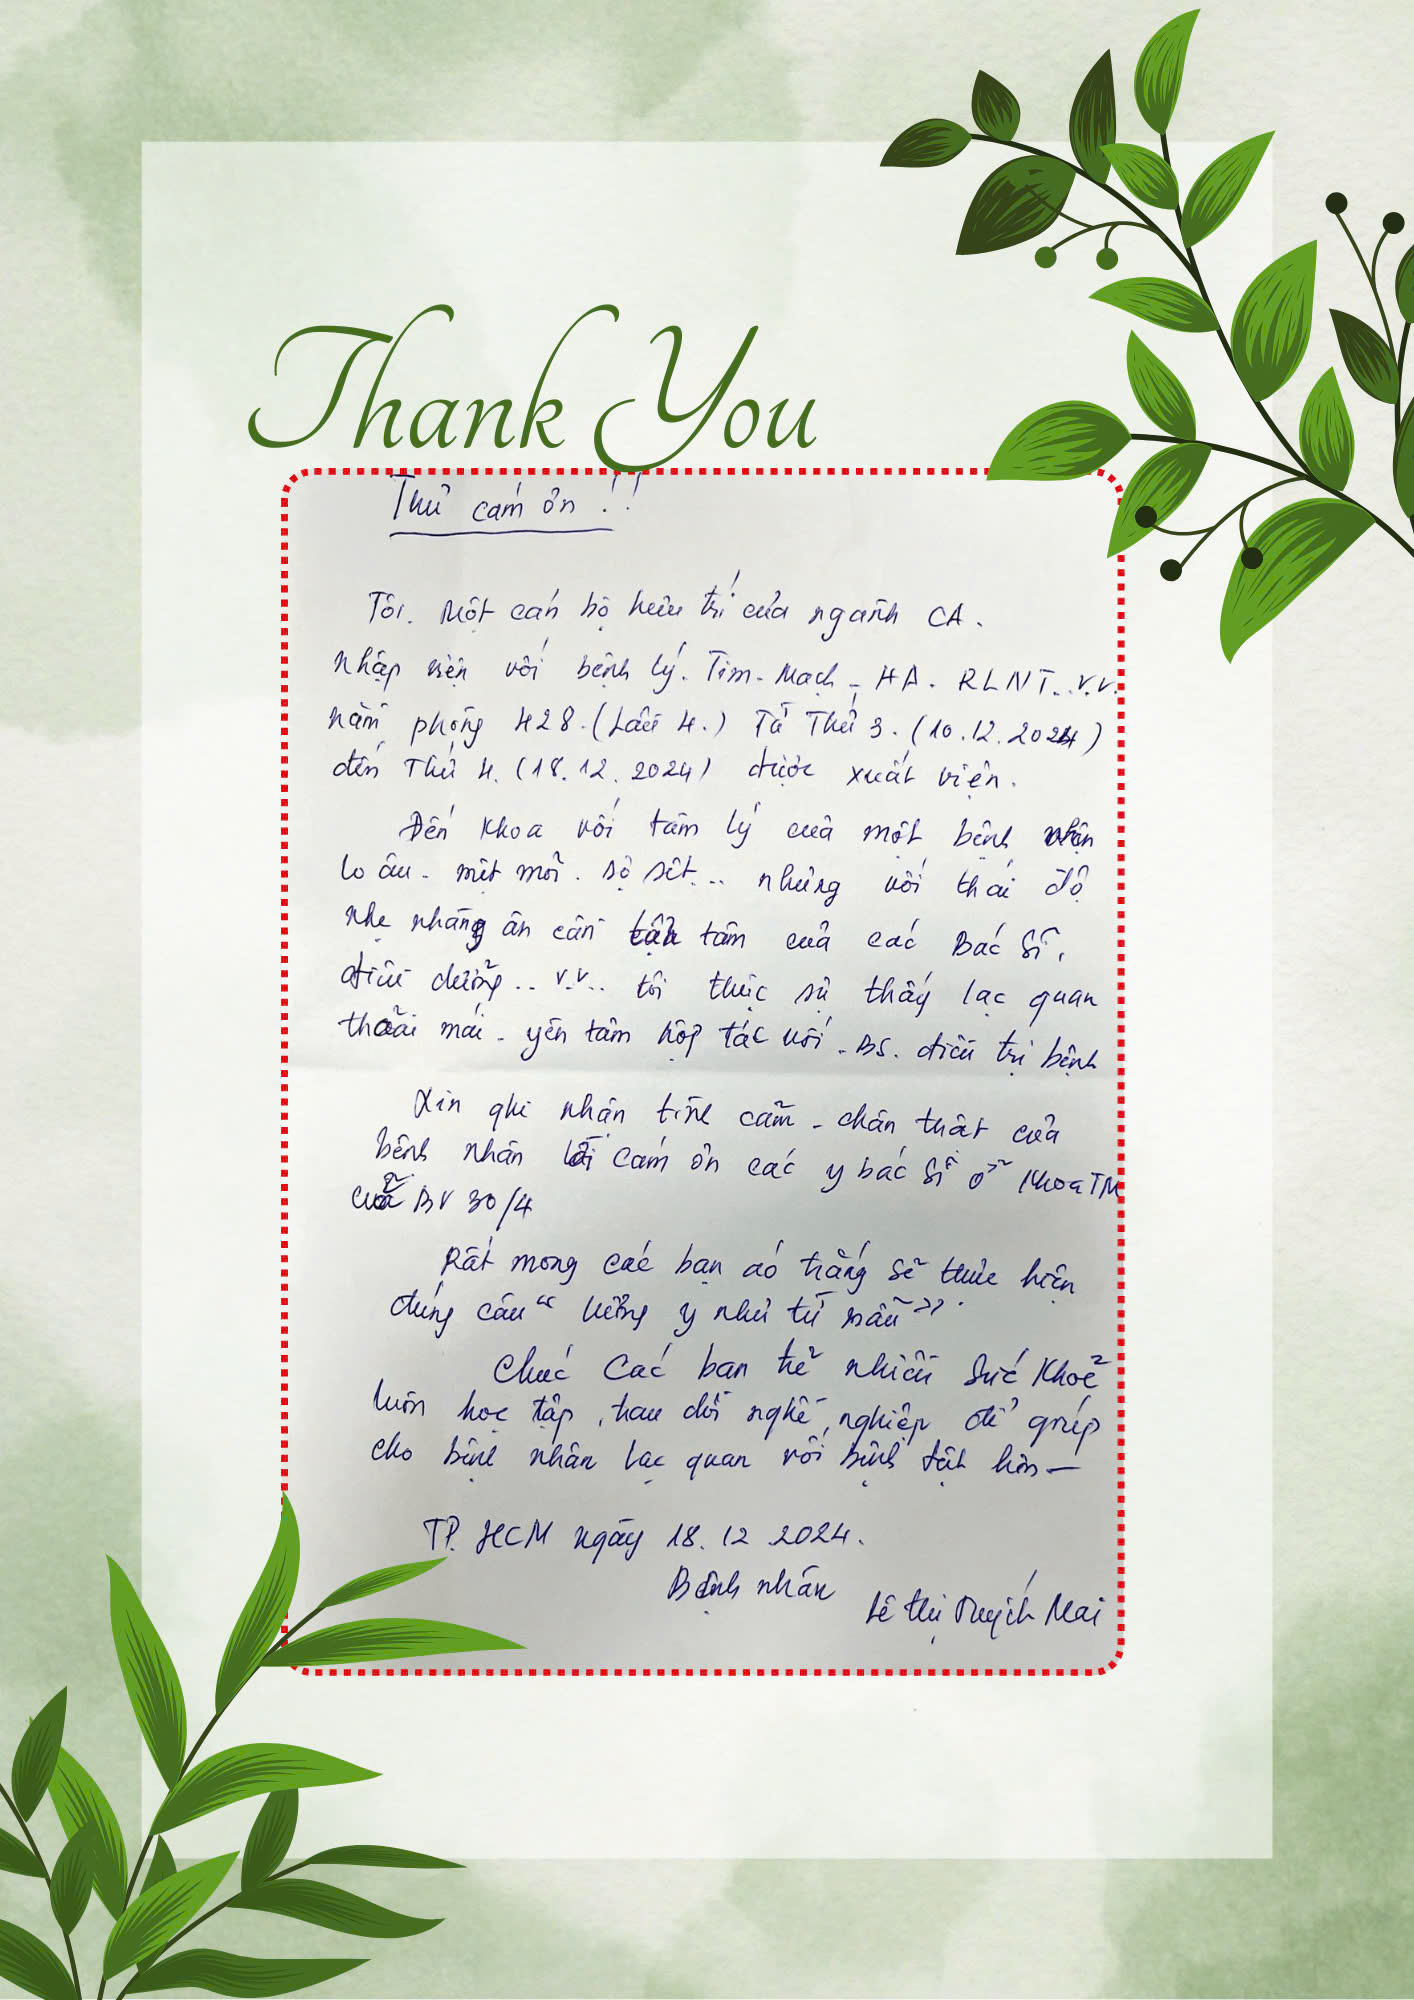 Thank You
Thư cám ơn !!
Tôi. Một cán bộ hưu trí của ngành CA.
nhập viện với bệnh lý. Tim - Mạch - HA. RLNT...v.v.
nằm phòng 428. (Lầu 4.) Từ Thứ 3. (10.12.2024)
đến Thứ 4. (18.12.2024) được xuất viện.
Đến Khoa với tâm lý của một bệnh nhân
lo âu - mệt mỏi. sợ sệt... nhưng với thái độ
nhẹ nhàng ân cần tận tâm của các Bác Sĩ,
điều dưỡng... v.v... tôi thực sự thấy lạc quan
thoải mái - yên tâm hợp tác với - BS. điều trị bệnh
Xin ghi nhận tình cảm - chân thật của
bệnh nhân lời cám ơn các y bác sĩ ở Khoa TM
của BV 30/4
Rất mong các bạn áo trắng sẽ thực hiện
đúng câu "lương y như từ mẫu".
Chúc Các bạn trẻ nhiều Sức Khoẻ
luôn học tập, trau dồi nghề nghiệp để giúp
cho bệnh nhân lạc quan với bệnh tật hơn -
TP. HCM ngày 18.12.2024.
Bệnh nhân
Lê thị Mai